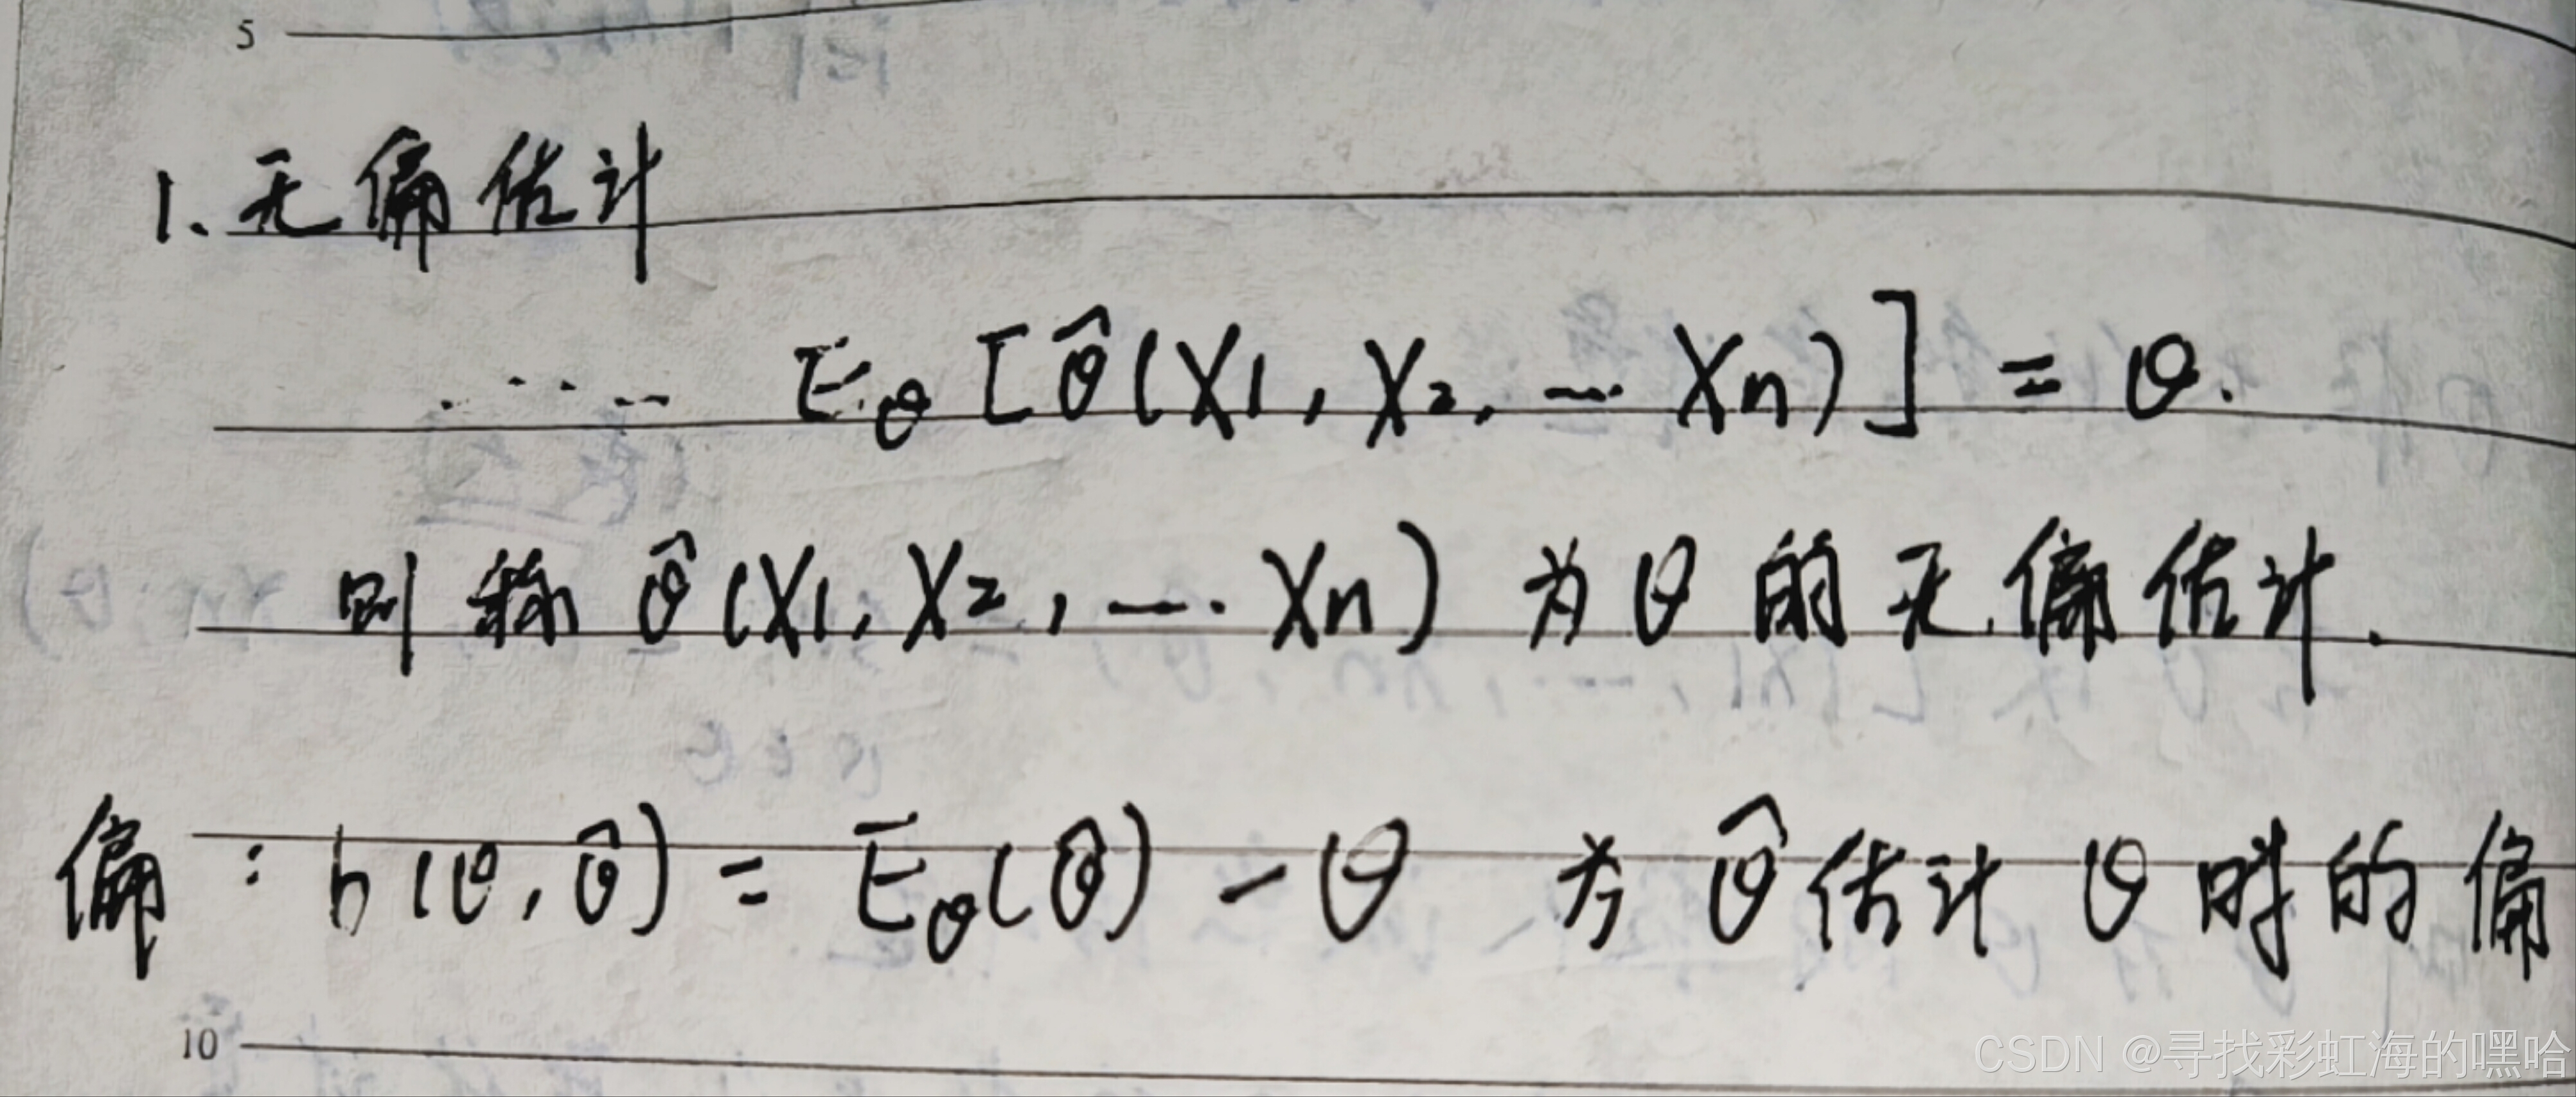 5
1. 无偏估计
..... E_θ [θ̂(X1, X2, … Xn)] = θ.
则称 θ̂(X1, X2, … Xn) 为 θ 的无偏估计.
偏: b(θ, θ̂) = E_θ(θ̂) - θ 为 θ̂ 估计 θ 时的偏
10
CSDN @寻找彩虹海的嘿哈